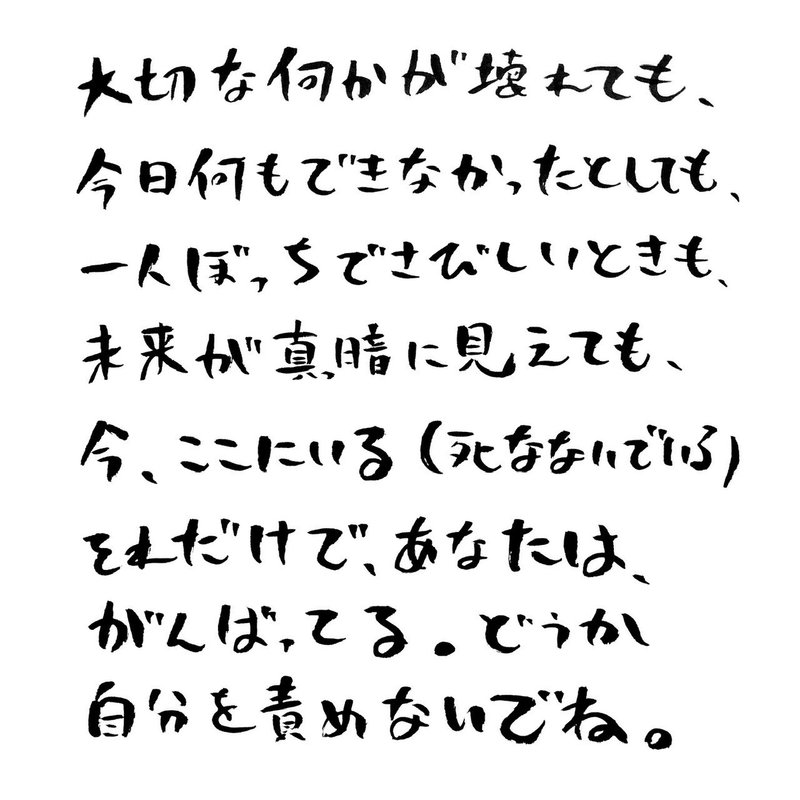 大切な何かが壊れても、
今日何もできなかったとしても、
一人ぼっちでさびしいときも、
未来が真っ暗に見えても、
今、ここにいる(死なないでいる)
それだけで、あなたは、
がんばってる。どうか
自分を責めないでね。